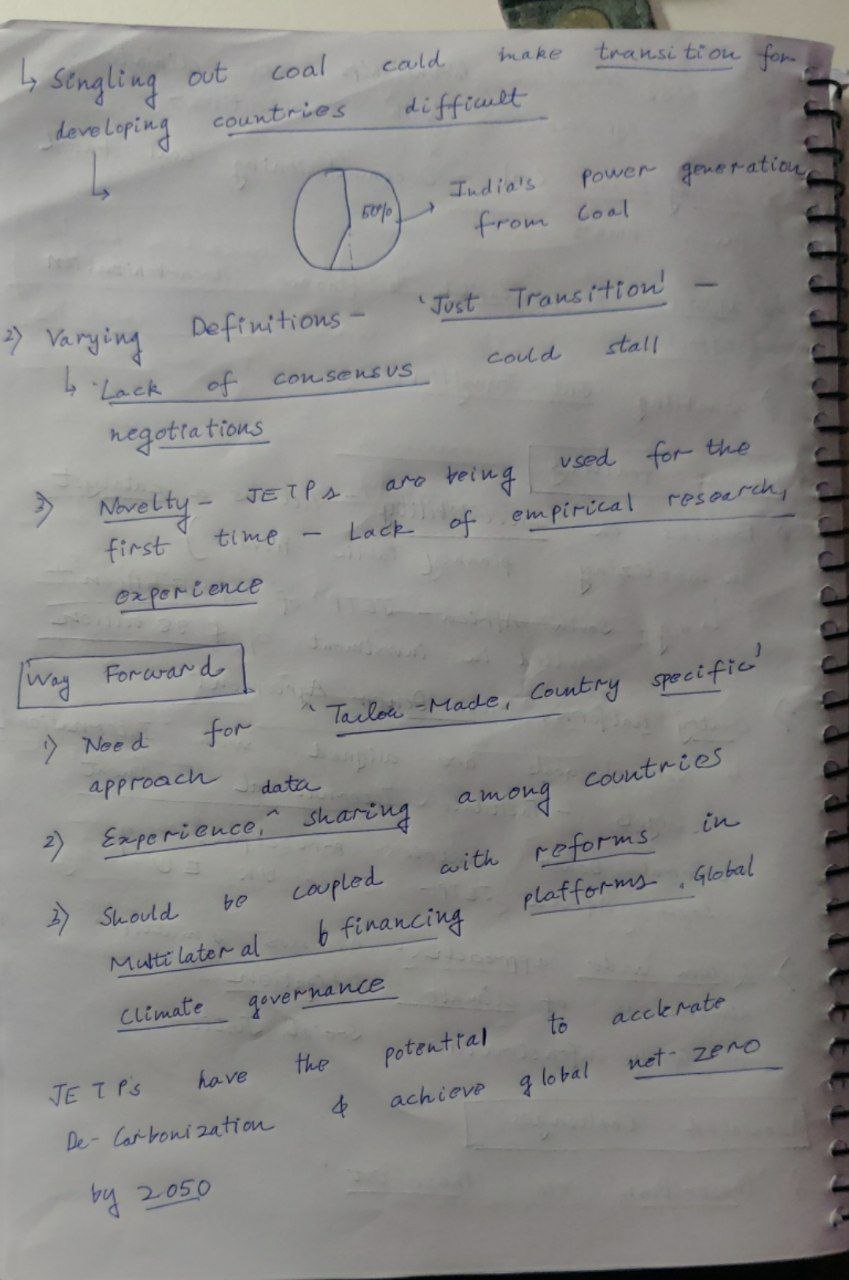 ↳ Singling out coal cald make transition for
developing countries difficult
↳
50% → India's power generation
from coal
2) Varying Definitions - 'Just Transition' -
↳ 'Lack of consensus could stall
negotiations
3) Novelty - JETPs are being used for the
first time - Lack of empirical research,
experience
Way Forward
1) Need for 'Tailor-Made, Country specific'
approach
2) Experience, ^data sharing among countries
3) Should be coupled with reforms in
Multilateral financing platforms, Global
Climate governance
JETPs have the potential to acclerate
De-Carbonization & achieve global net-zero
by 2050